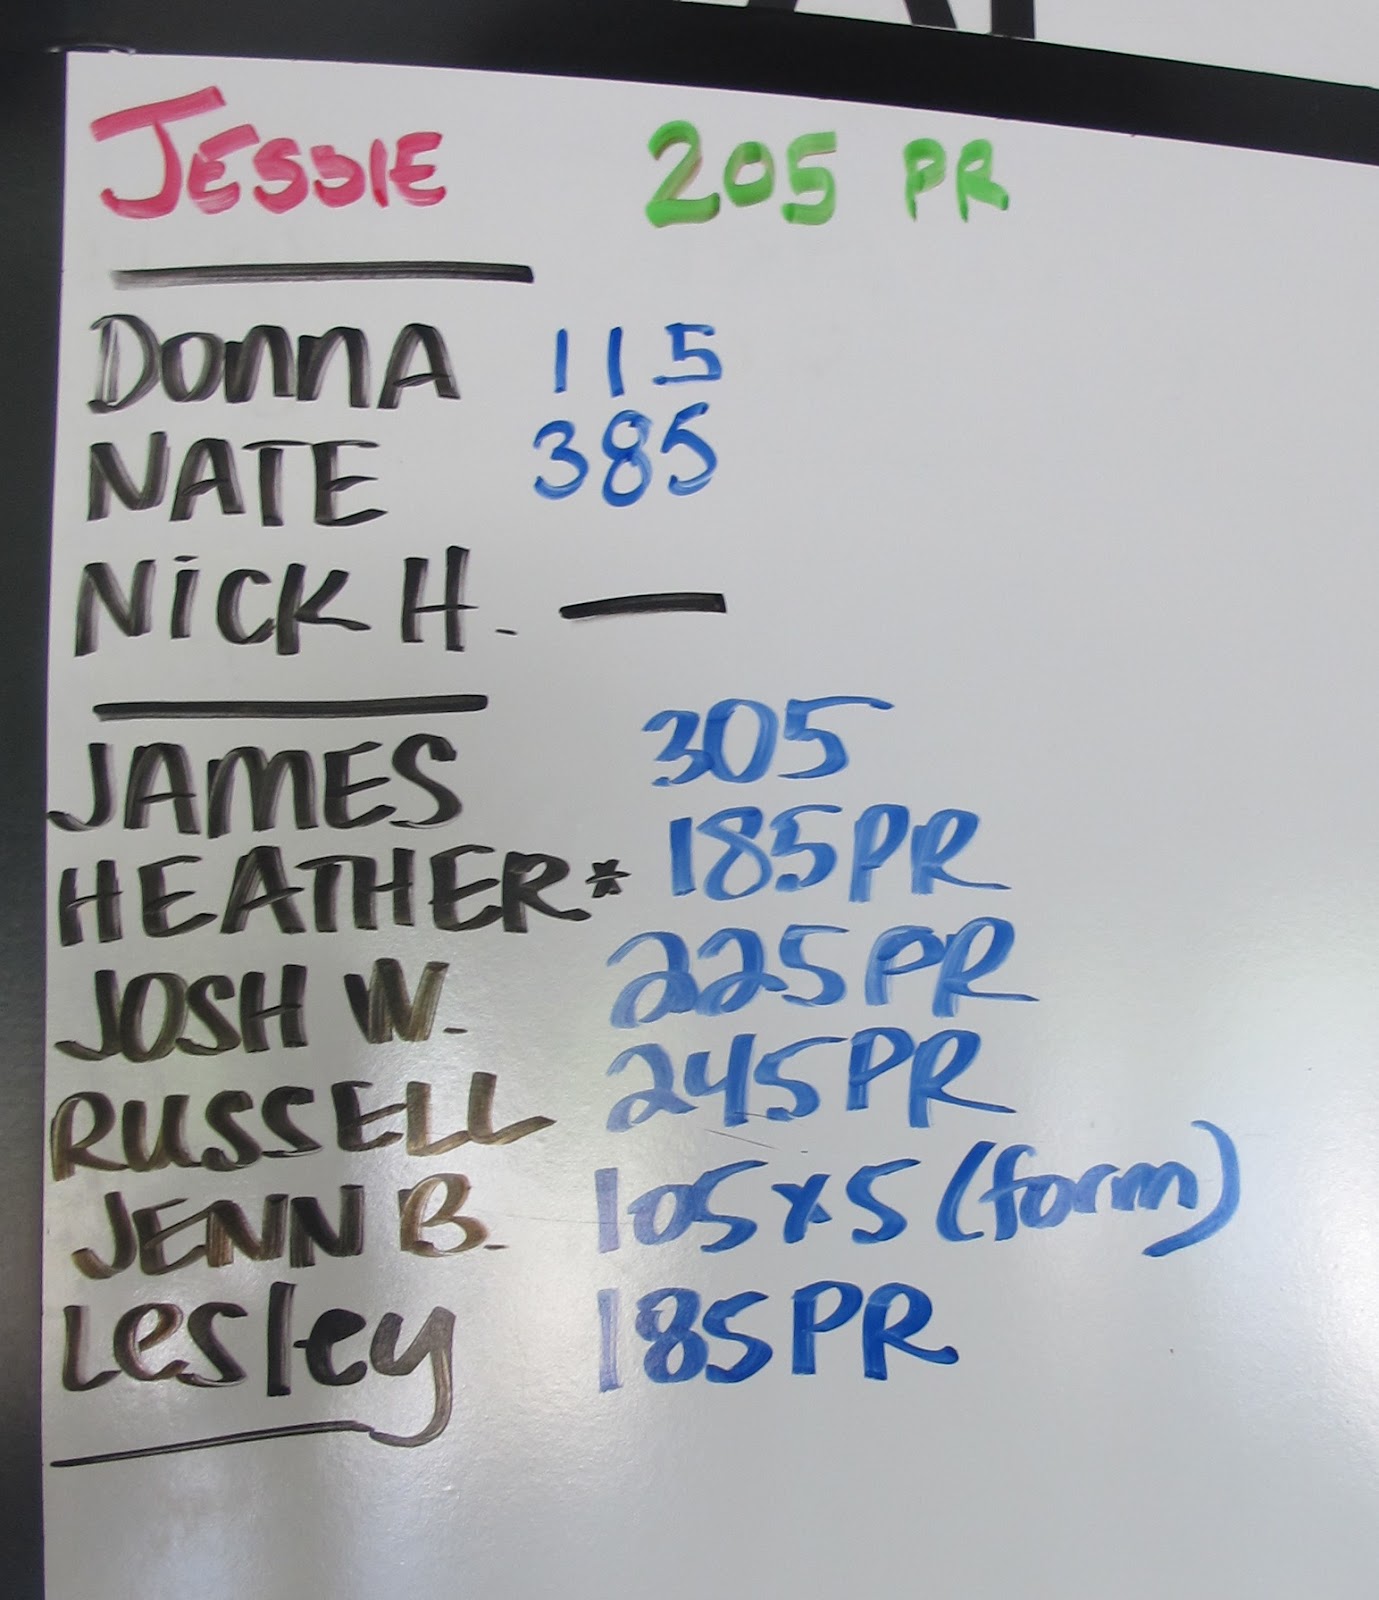 JESSIE 205 PR
DONNA 115
NATE 385
NICK H. —
JAMES 305
HEATHER* 185 PR
JOSH W. 225 PR
RUSSELL 245 PR
JENN B. 105 x 5 (form)
Lesley 185 PR